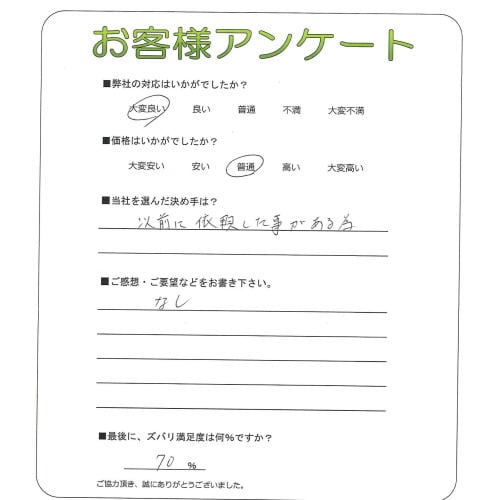 お客様アンケート
■弊社の対応はいかがでしたか?
大変良い 良い 普通 不満 大変不満
■価格はいかがでしたか?
大変安い 安い 普通 高い 大変高い
■当社を選んだ決め手は?
以前に依頼した事がある為
■ご感想・ご要望などをお書き下さい。
なし
■最後に、ズバリ満足度は何%ですか?
70 %
ご協力頂き、誠にありがとうございました。